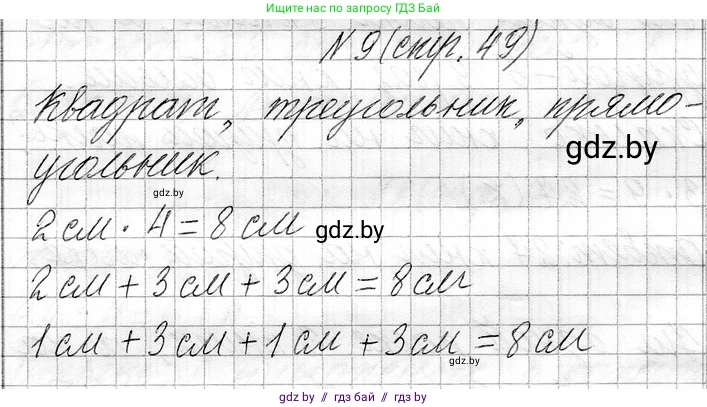 Ищите нас по запросу ГДЗ Бай
N 9 (стр. 49)
Квадрат, треугольник, прямо-
gdz.by
угольник.
gdz.by
2 см · 4 = 8 см
gdz.by
2 см + 3 см + 3 см = 8 см
1 см + 3 см + 1 см + 3 см = 8 см
gdz.by
gdz by // гдз бай // гдз by